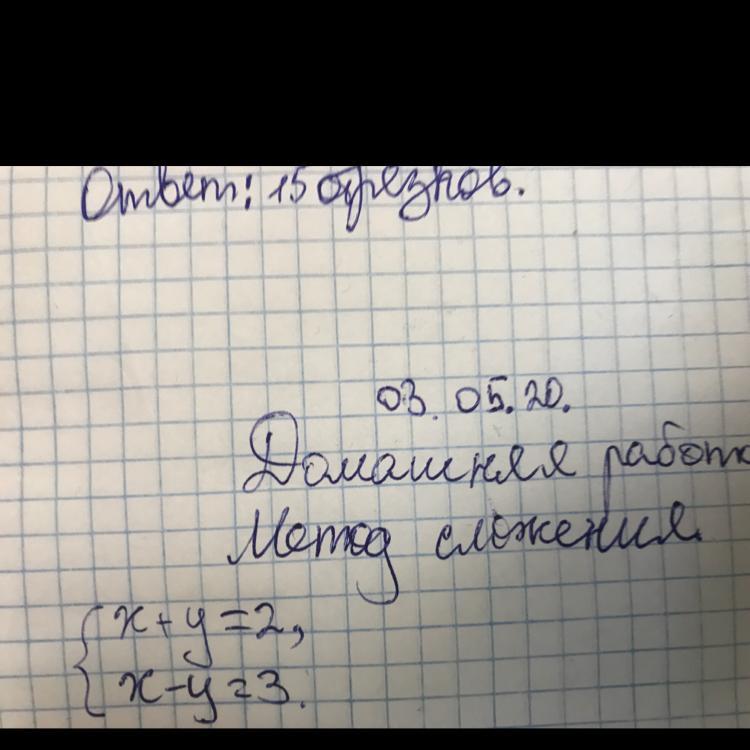 Ответ: 15 отрезков.
03.05.20.
Домашняя работа
Метод сложения.
{x+y=2,
x-y=3.